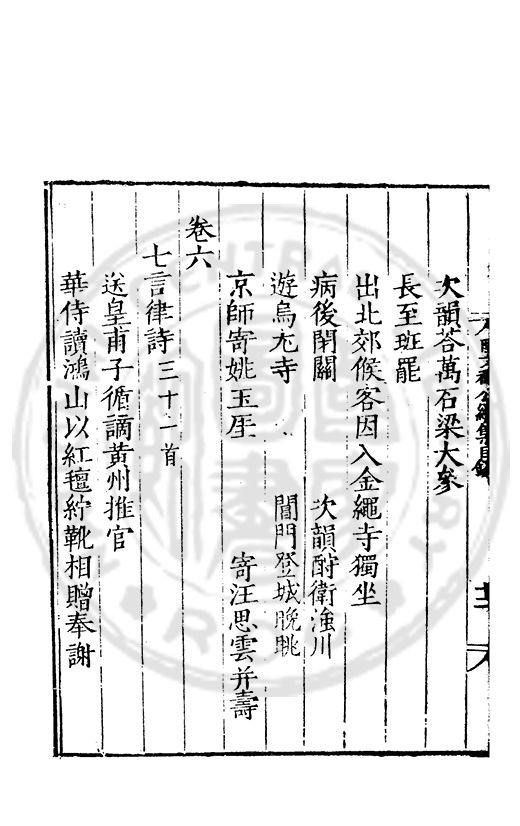 次韻荅萬石梁大參
長至班罷
出北郊候客因入金繩寺獨坐
病後閉關　次韻酧衛淮川
遊烏尤寺　閶門登城晚眺
京師寄姚玉厓　寄汪思雲并壽
卷六
七言律詩三十一首
送皇甫子循謫黄州推官
華侍讀鴻山以紅氊紵靴相贈奉謝